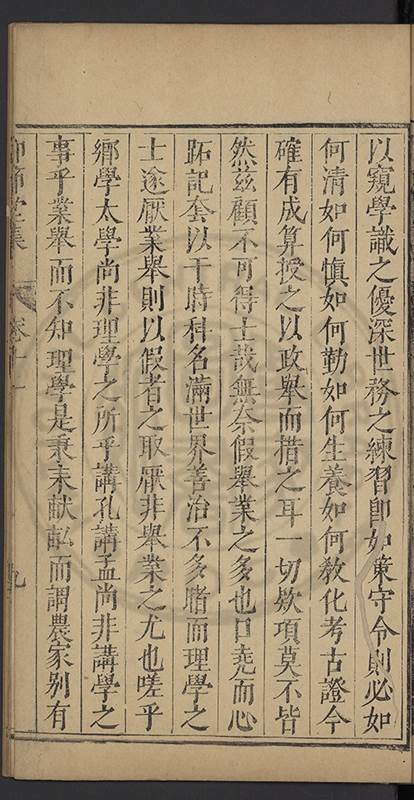 以窺學識之優深世務之練習卽如策守令則必如
何清如何慎如何勤如何生養如何教化考古證今
確有成算授之以政舉而措之耳一切欵項莫不皆
然茲顧不可得士哉無奈假舉業之多也口堯而心
跖記套以干時科名滿世界善治不多睹而理學之
士遂厭業舉則以假者之取厭非舉業之尤也嗟乎
鄉學太學尚非理學之所乎講孔講孟尚非講學之
事乎業舉而不知理學是秉耒献畝而謂農家别有
節堂集
卷十一
九